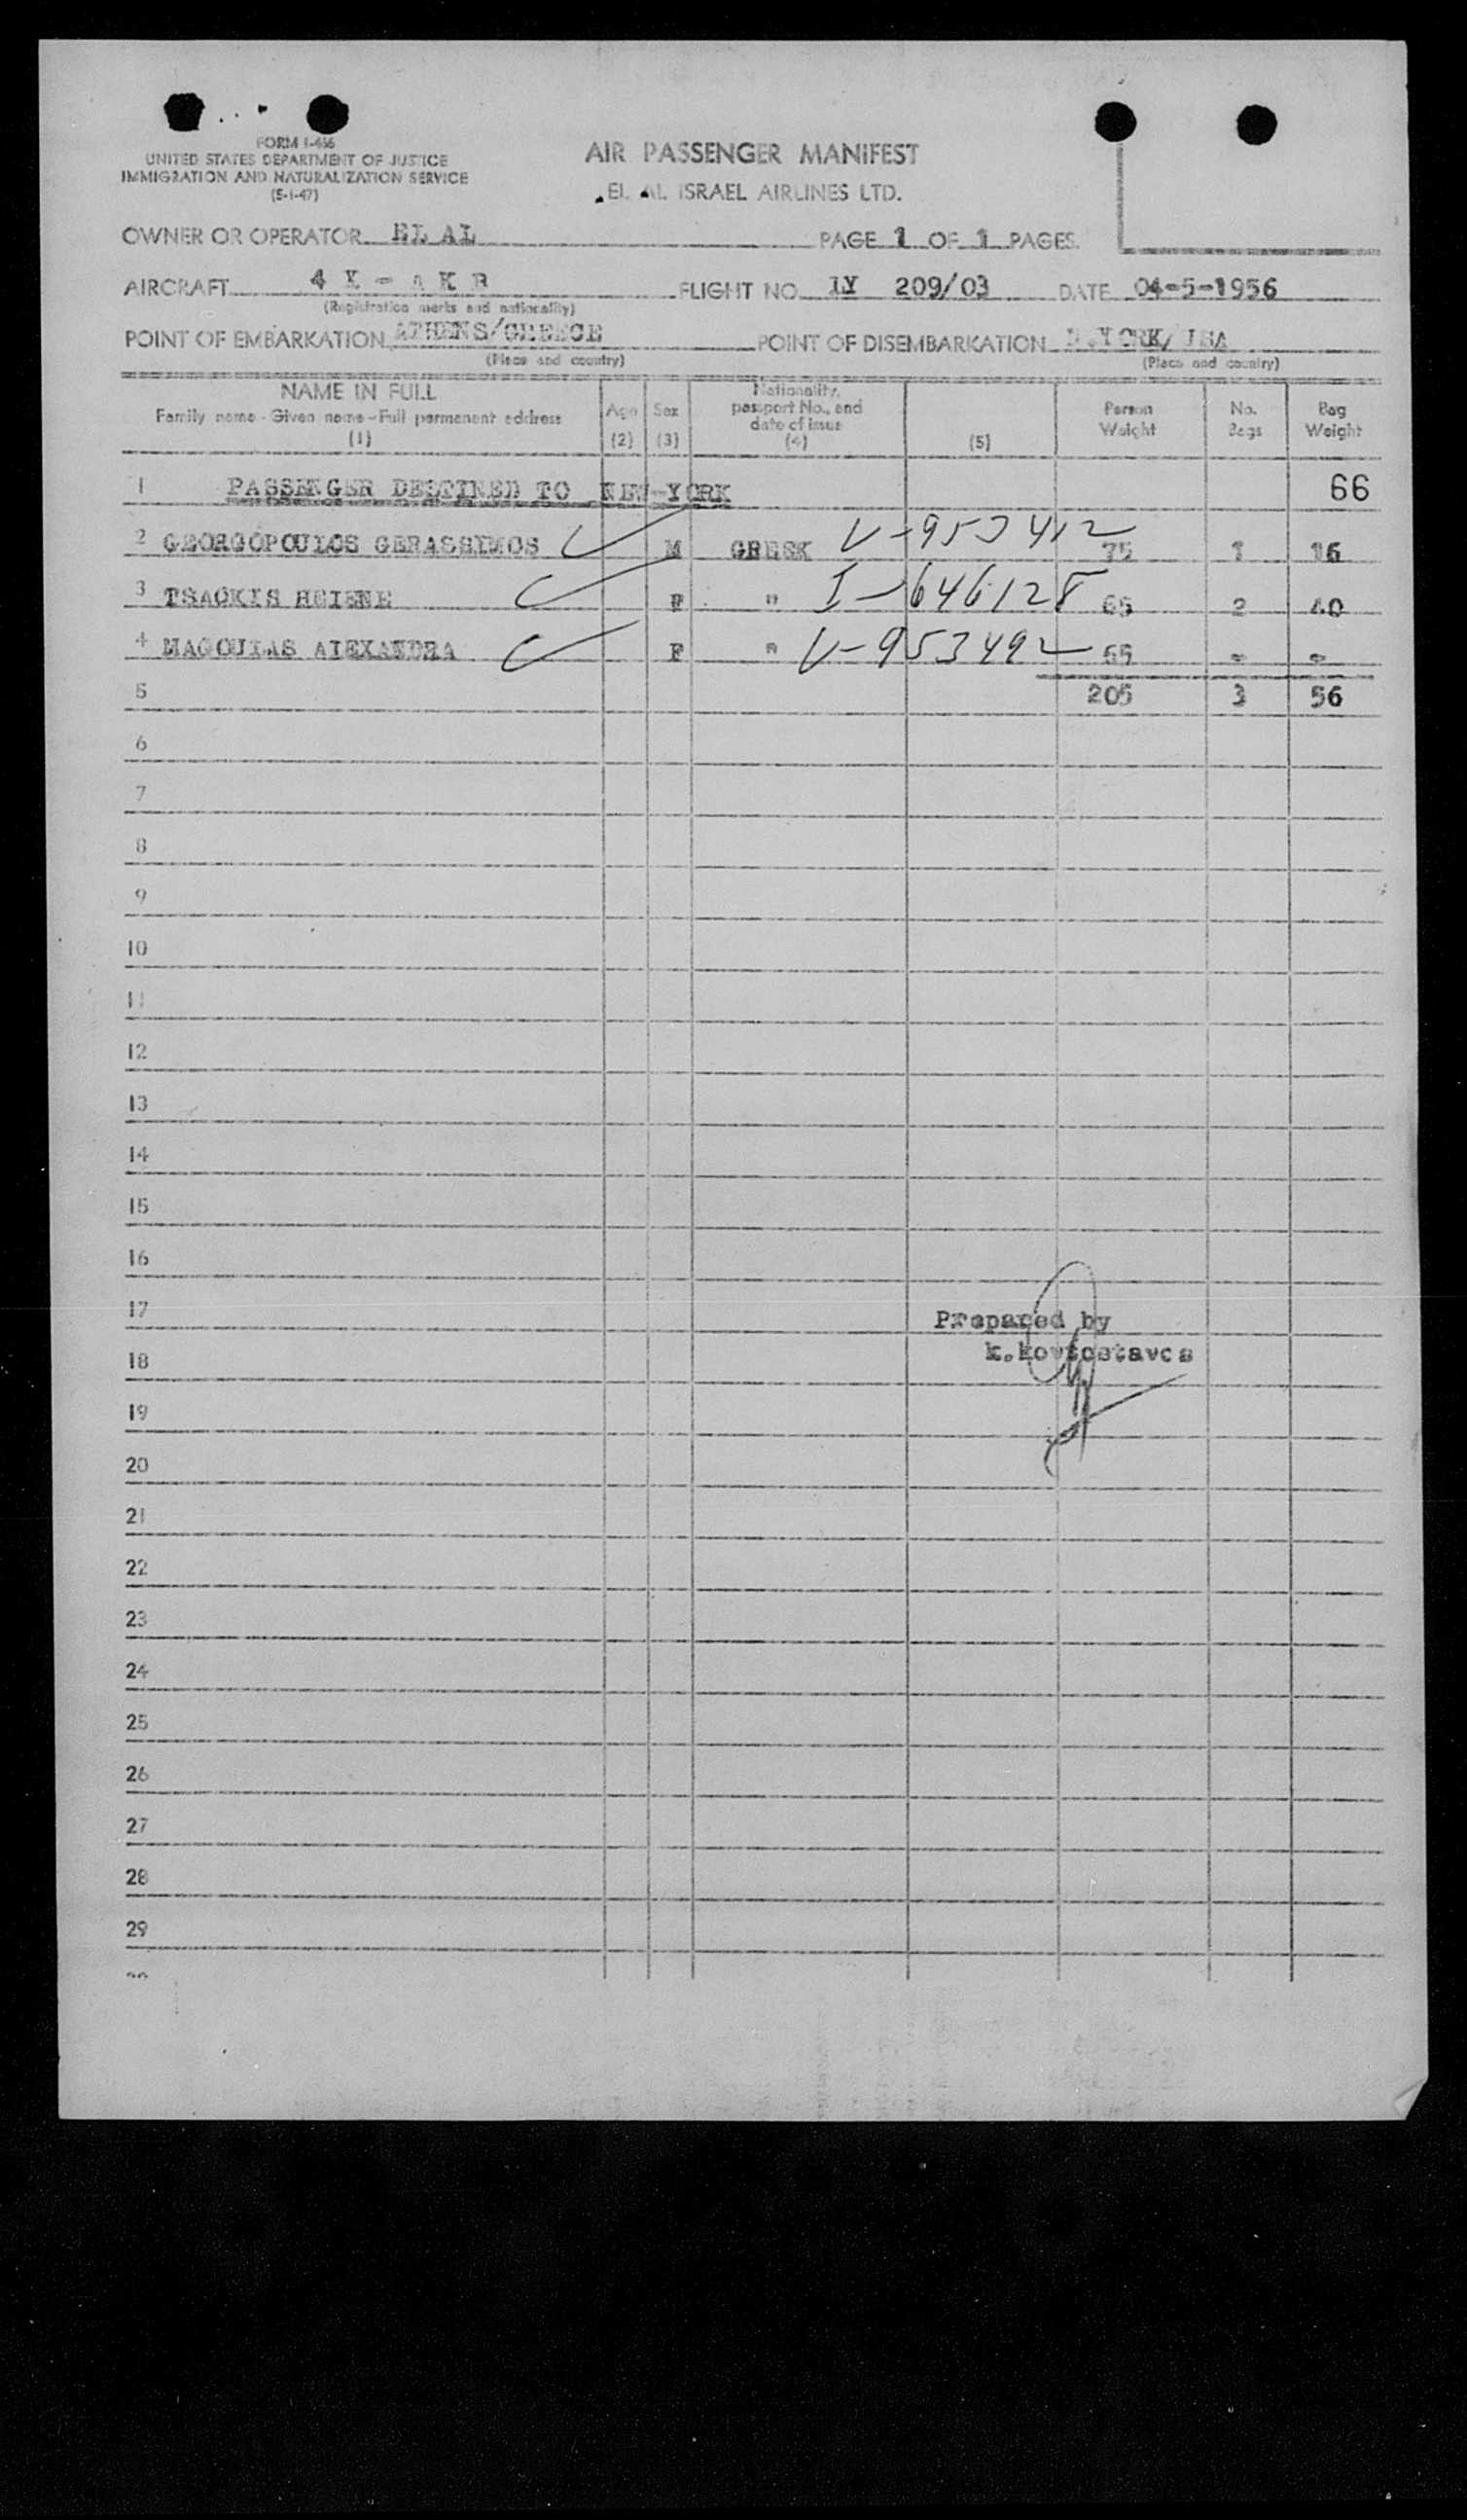 FORM I-466
UNITED STATES DEPARTMENT OF JUSTICE
IMMIGRATION AND NATURALIZATION SERVICE
(5-1-47)
AIR PASSENGER MANIFEST
EL AL ISRAEL AIRLINES LTD.
OWNER OR OPERATOR EL AL PAGE 1 OF 1 PAGES
AIRCRAFT 4 X - A K B FLIGHT NO. LY 209/03 DATE 04-5-1956
(Registration marks and nationality)
POINT OF EMBARKATION ATHENS/GREECE POINT OF DISEMBARKATION N.YORK/USA
(Place and country) (Place and country)
NAME IN FULL
Family name - Given name - Full permanent address
(1)
Age
(2)
Sex
(3)
Nationality,
passport No., and
date of issue
(4)
(5)
Person
Weight
No.
Bags
Bag
Weight
1 PASSENGER DESTINED TO NEW-YORK 66
2 GEORGOPOULOS GERASSIMOS M GREEK V-953412 75 1 16
3 TSAOKIS HELENE F " I-646128 65 2 40
4 MAGOULAS ALEXANDRA F " V-953492 65 - -
5 205 3 56
6
7
8
9
10
11
12
13
14
15
16
17 Prepared by
18
19
20
21
22
23
24
25
26
27
28
29